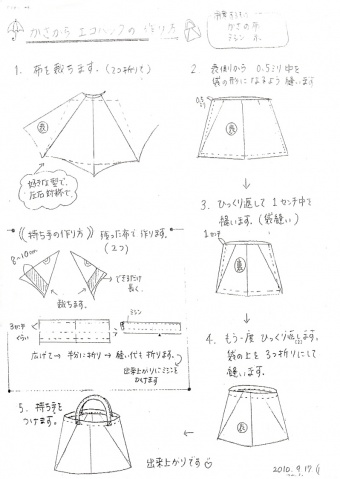 かさから エコバックの 作り方
かさの布
ミシン 糸
1. 布を裁ちます。(2つ折りで)
表
好きな型で、
左右対称で。
2. 表側から 0.5ミリ中を
袋の形になるよう 縫います
0.5ミリ
表
3. ひっくり返して 1センチ中を
縫います。(袋縫い)
1センチ
裏
《持ち手の作り方》 残った布で作ります。
(2つ)
8~10cm
できるだけ
長く
裁ちます。
3センチ
ぐらい
ミシン
広げて → 半分に折り → 縫い代も折ります。
出来上がりにミシンを
かけます
4. もう一度 ひっくり返します。
袋の上を 3つ折りにして
縫います。
表
5. 持ち手を
つけます。
出来上がりです
2010. 9. 17